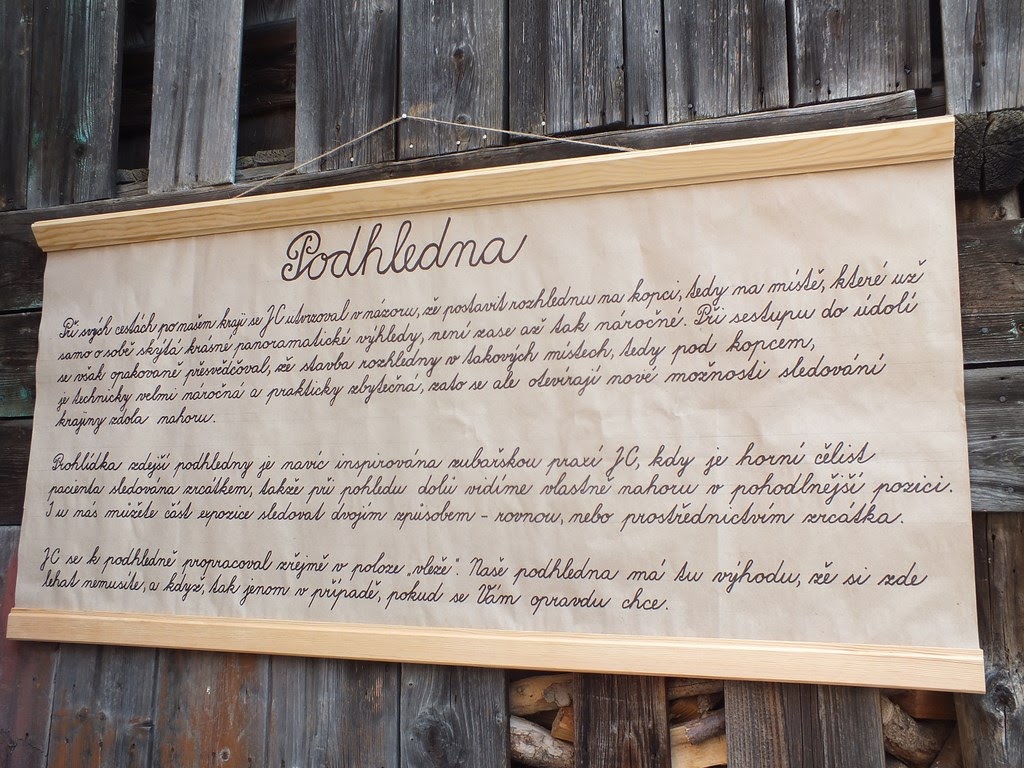 Podhledna
Při svých cestách po našem kraji se JC utvrzoval v názoru, že postavit rozhlednu na kopci, tedy na místě, které už
samo o sobě skýtá krásné panoramatické výhledy, není zase až tak náročné. Při sestupu do údolí
se však opakovaně přesvědčoval, že stavba rozhledny v takových místech, tedy pod kopcem,
je technicky velmi náročná a prakticky zbytečná, zato se ale otevírají nové možnosti sledování
krajiny zdola nahoru.
Prohlídka zdejší podhledny je navíc inspirována zubařskou praxí JC, kdy je horní čelist
pacienta sledována zrcátkem, takže při pohledu dolů vidíme vlastně nahoru v pohodlnější pozici.
I u nás můžete část expozice sledovat dvojím způsobem - rovnou, nebo prostřednictvím zrcátka.
JC se k podhledně propracoval zřejmě v poloze „vleže". Naše podhledna má tu výhodu, že si zde
lehat nemusíte, a když, tak jenom v případě, pokud se Vám opravdu chce.